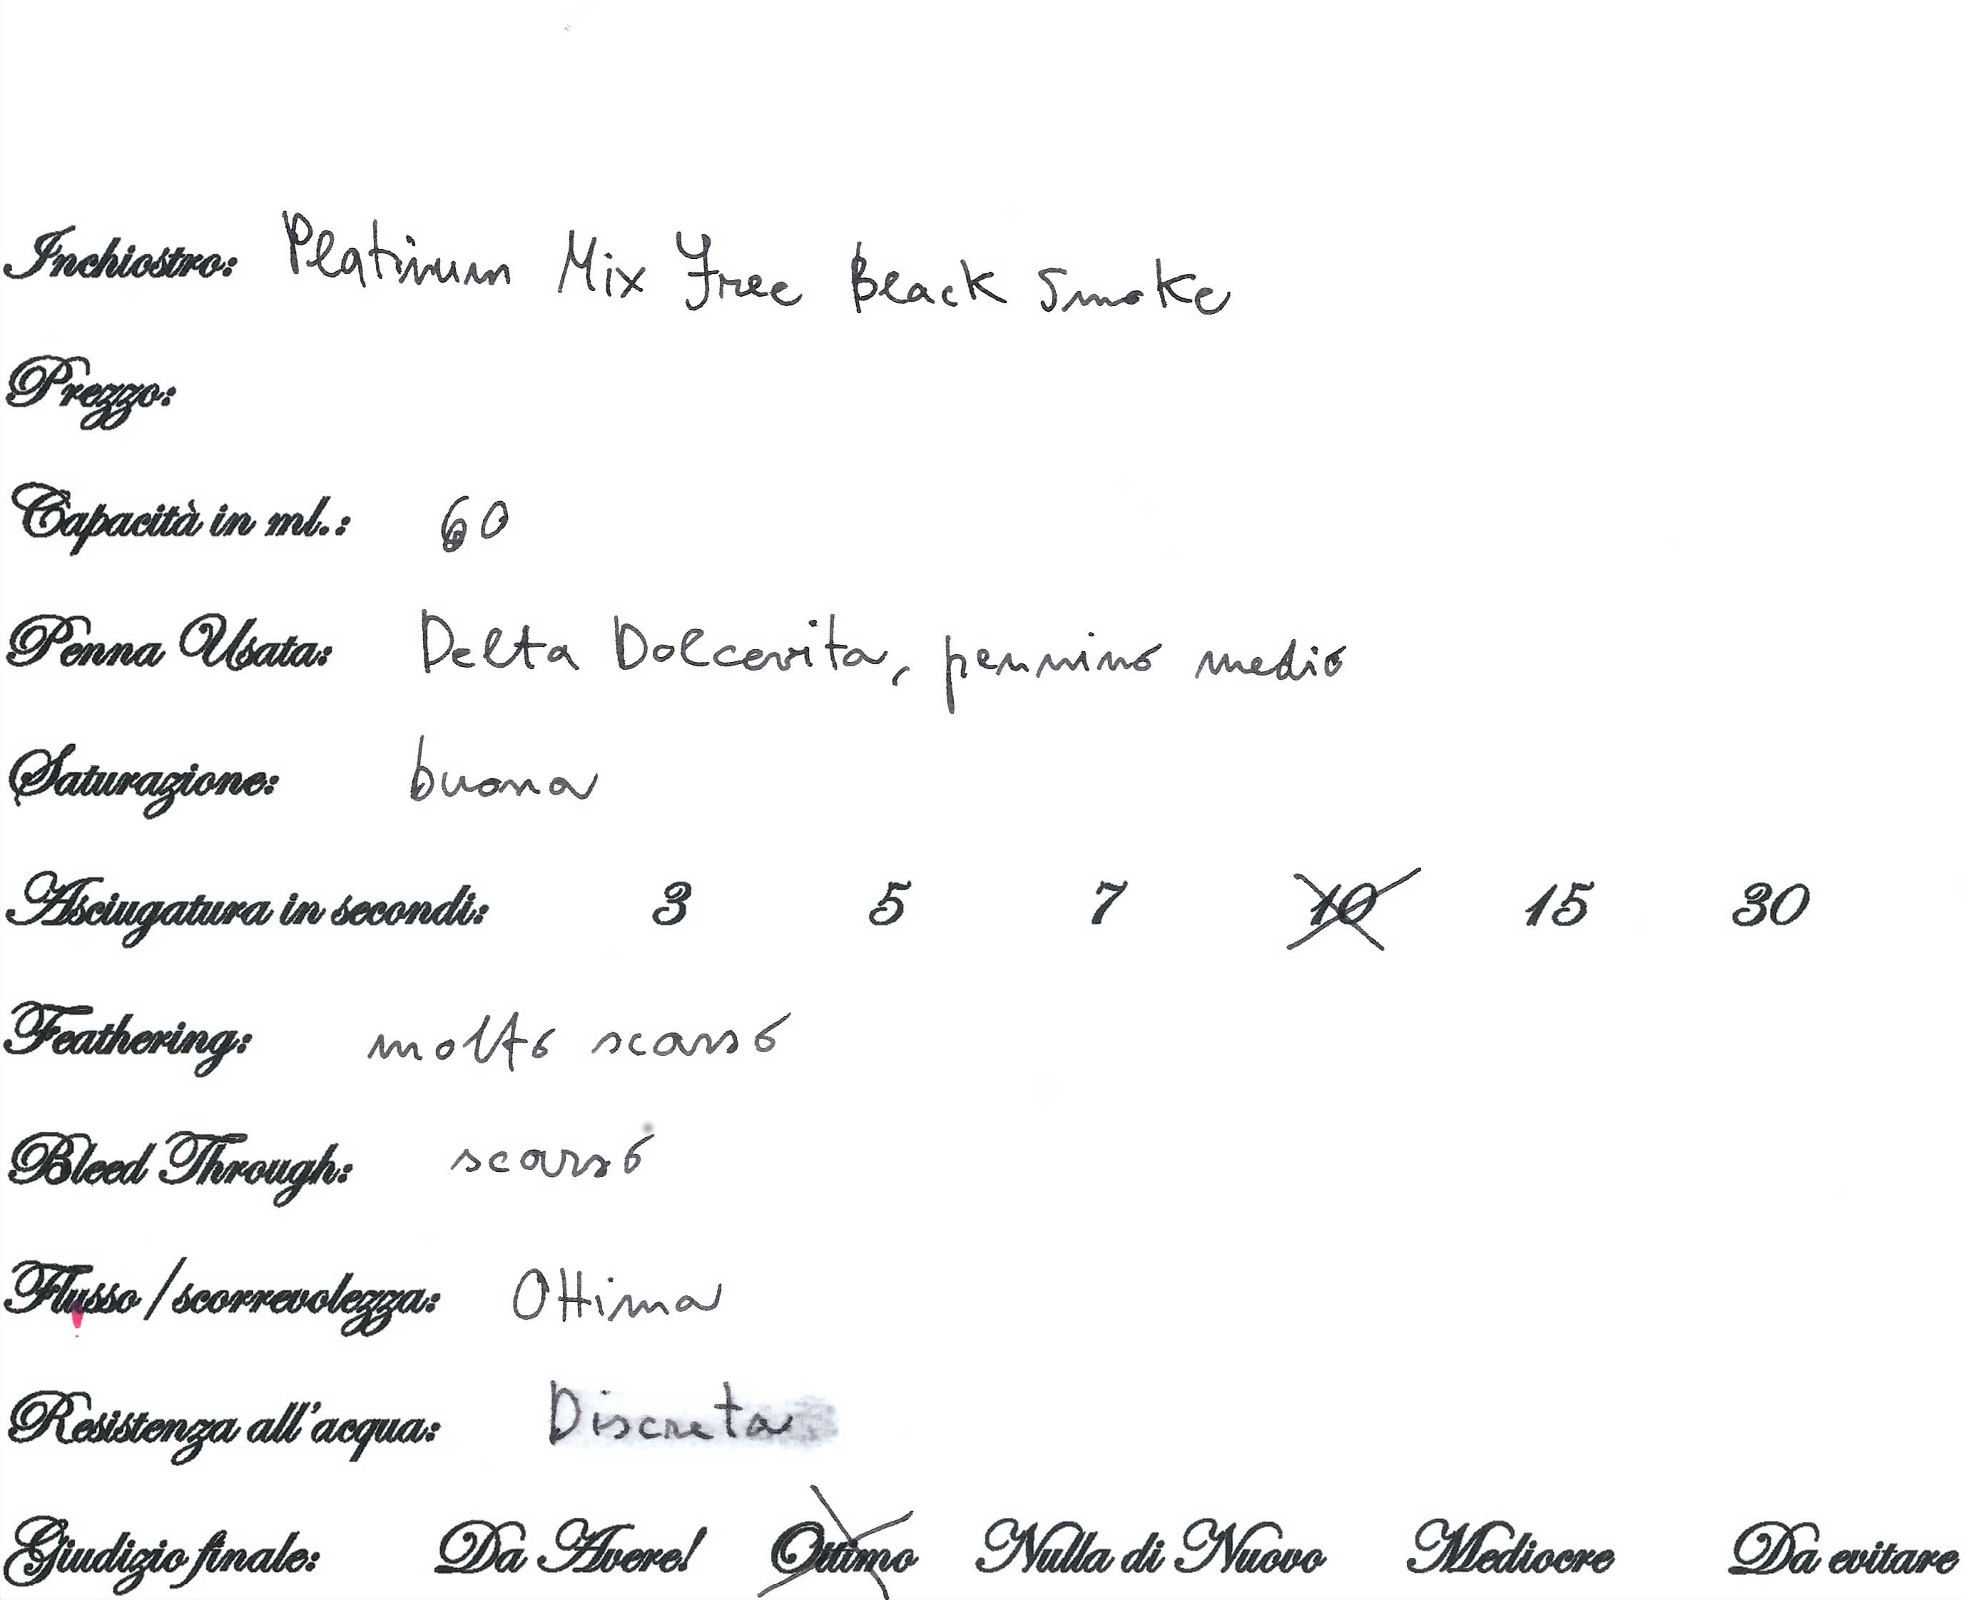 Inchiostro: Platinum Mix Free Black Smoke
Prezzo:
Capacità in ml.: 60
Penna Usata: Delta Dolcevita, pennino medio
Saturazione: buona
Asciugatura in secondi: 3 5 7 10 15 30
Feathering: molto scarso
Bleed Through: scarso
Flusso / scorrevolezza: Ottima
Resistenza all'acqua: Discreta
Giudizio finale: Da Avere! Ottimo Nulla di Nuovo Mediocre Da evitare